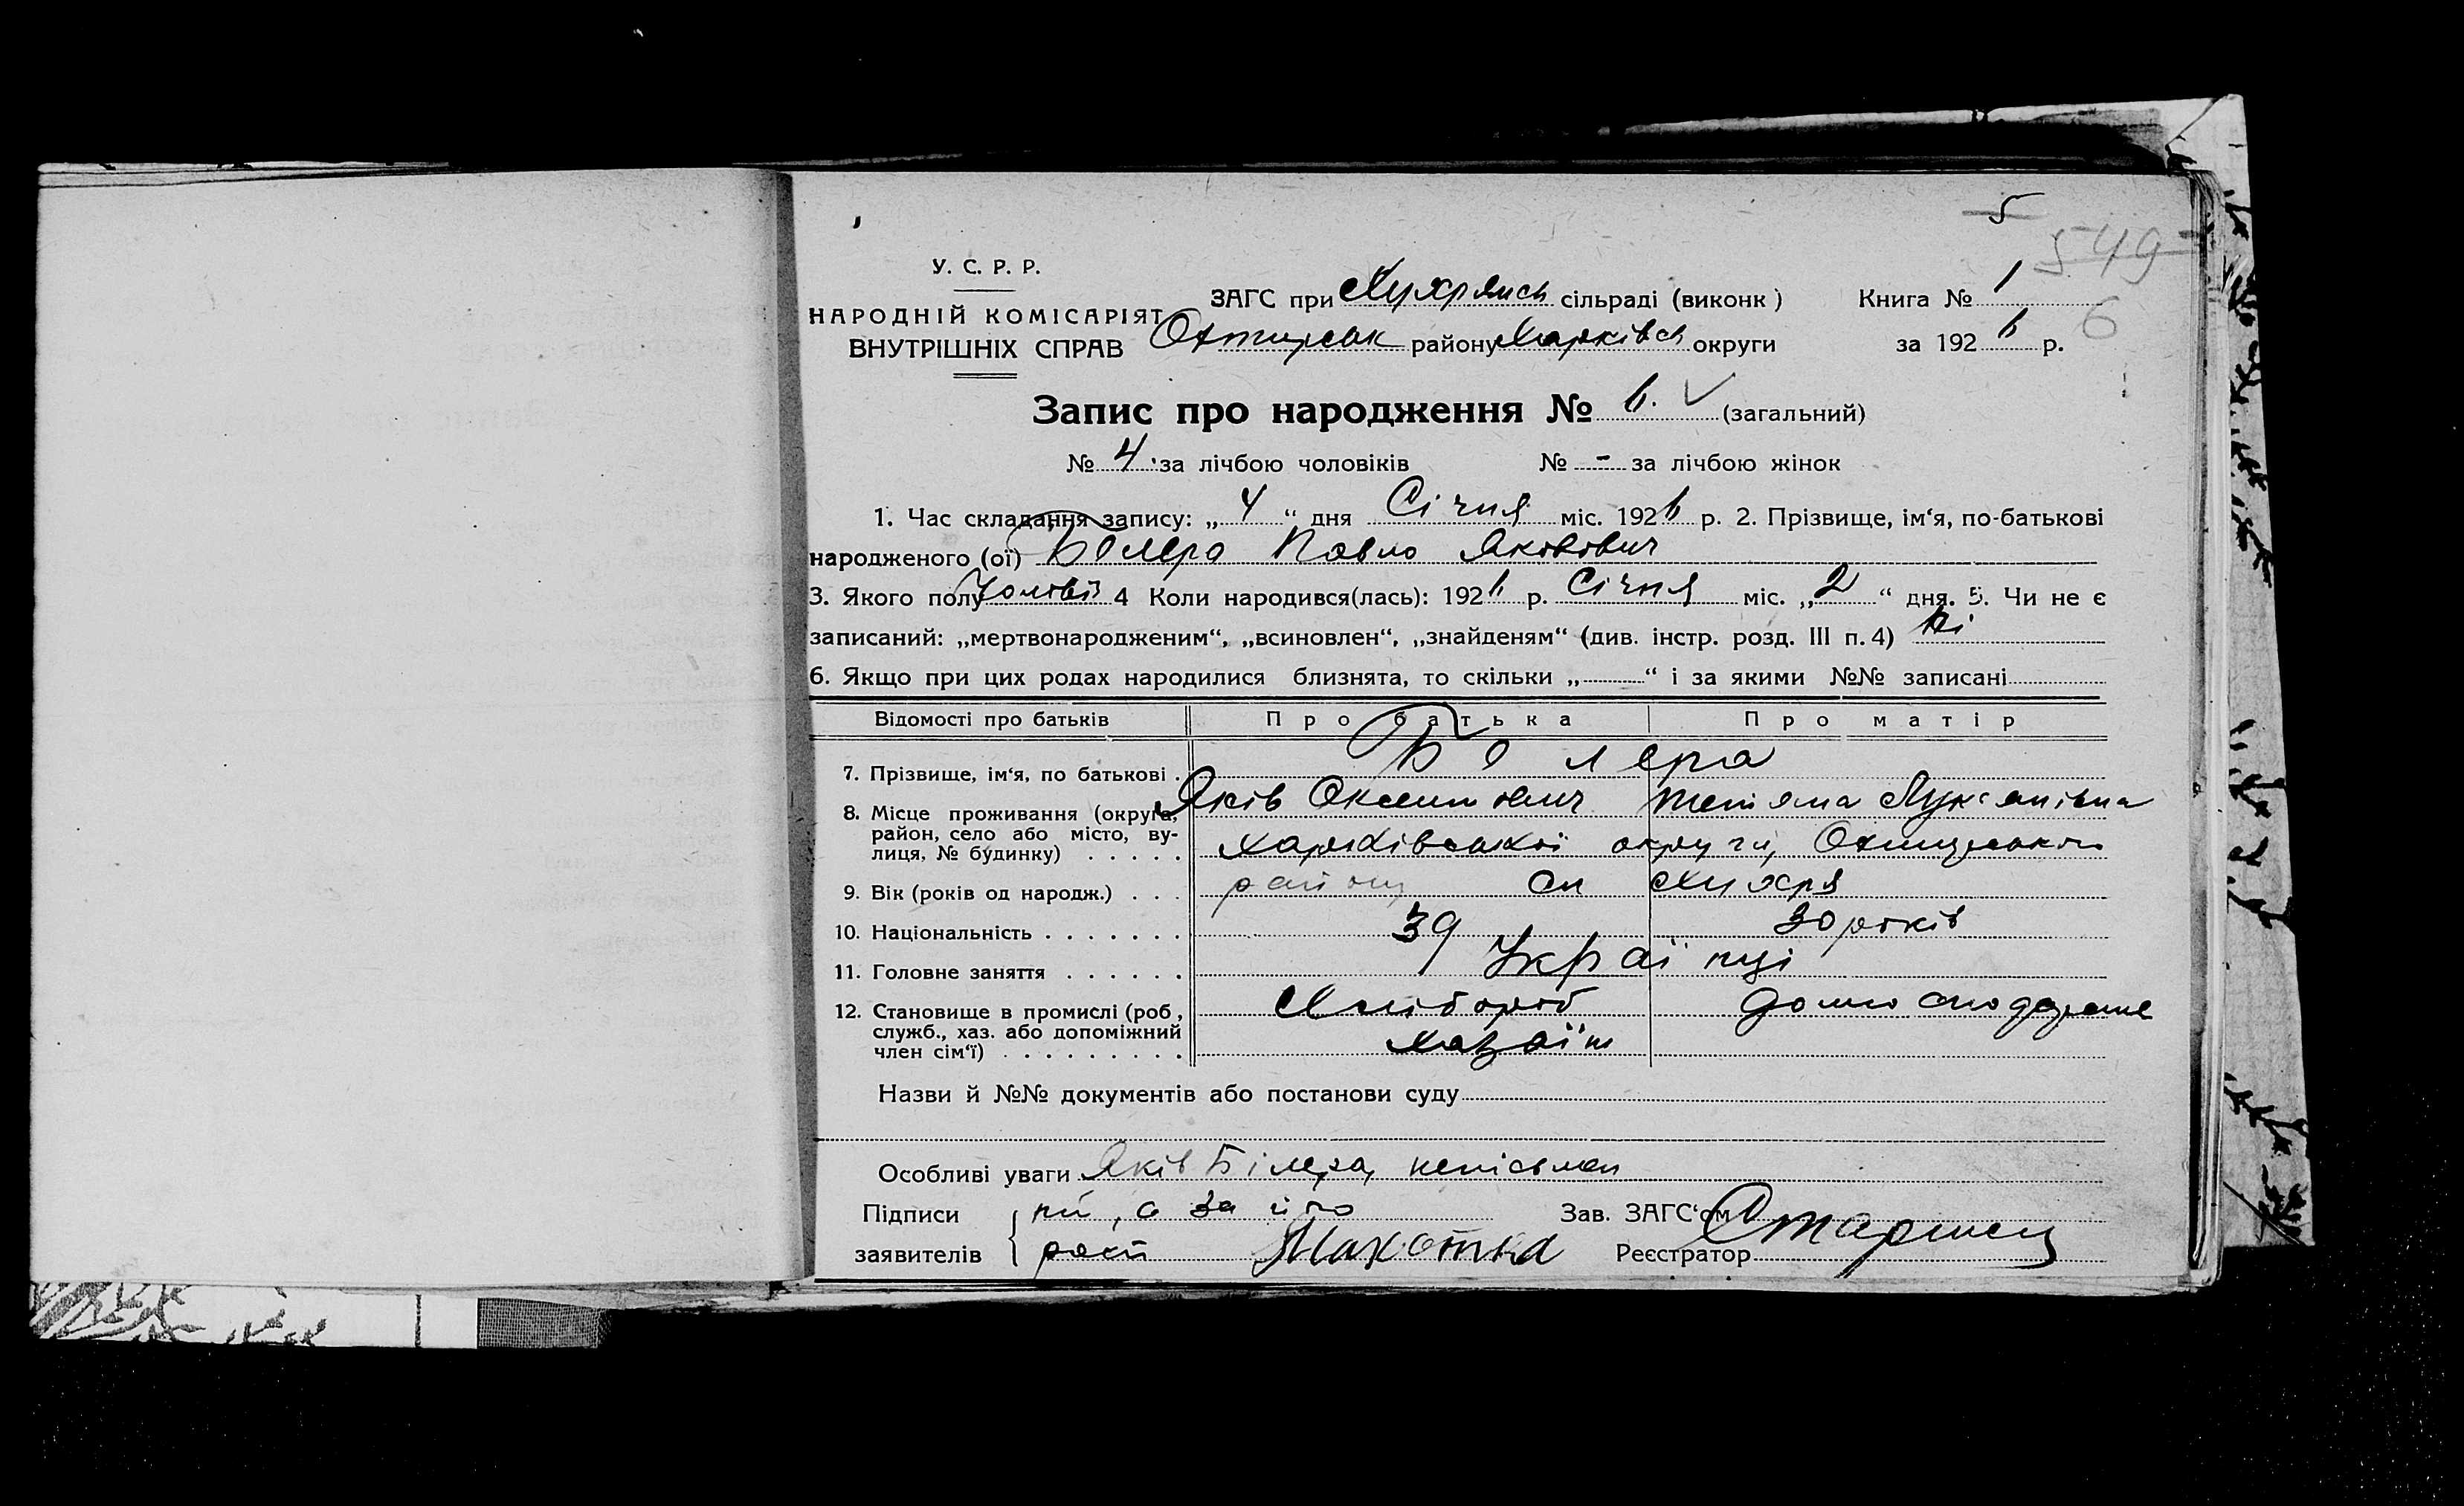 5
549
6
У. С. Р. Р.
НАРОДНІЙ КОМІСАРІЯТ
ВНУТРІШНІХ СПРАВ
ЗАГС при Хухрянск сільраді (виконк) Книга № 1
Охтирськ району Харківск округи за 1926 р.
Запис про народження № 6. (загальний)
№ 4. за лічбою чоловіків № - за лічбою жінок
1. Час складання запису: „4“ дня Січня міс. 1926 р. 2. Прізвище, ім‘я, по-батькові
народженого (ої) Білера Павло Якович
3. Якого полу Чоловіч 4 Коли народився(лась): 1926 р. Січня міс. „2“ дня. 5. Чи не є
записаний: „мертвонародженим“, „всиновлен“, „знайденям“ (див. інстр. розд. III п. 4) Ні
6. Якщо при цих родах народилися близнята, то скільки „ “ і за якими №№ записані
Відомості про батьків Про батька Про матір
7. Прізвище, ім‘я, по батькові . Білера
Яків Тетяна Лук‘янівна
8. Місце проживання (округа,
район, село або місто, ву-
лиця, № будинку) . . . . . Харківської округи, Охтирського
району сл Хухря
9. Вік (років од народж.) . . . 39 30 років
10. Національність . . . . . . . Українці
11. Головне заняття . . . . . . Хлібороб Домогосподарка
12. Становище в промислі (роб,
служб., хаз. або допоміжний
член сім‘ї) . . . . . . . . . Хазяїн
Назви й №№ документів або постанови суду
Особливі уваги Яків Білера, неписьмен
Підписи ний, а за його Зав. ЗАГС‘ом
заявителів Махотка Реєстратор